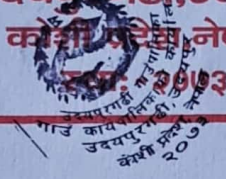 कोशी प्रदेश, ने
२०७३
उदयपुरगढी गाउँपालिका
गाउँ कार्यपालिकाको कार्यालय
उदयपुरगढी, उदयपुर
कोशी प्रदेश, नेपाल
२०७३